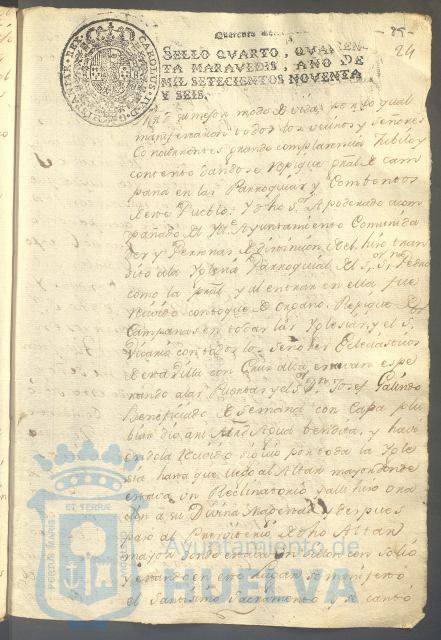 Quarenta mrs.
25
24
SELLO QVARTO, QVAREN-
TA MARAVEDIS, AÑO DE
MIL SETECIENTOS NOVENTA
Y SEIS.
su mejor modo de vida, por lo qual
manifestaron todos los vecinos y señores
Concurrentes grande complacencia Jubilo y
contento dandose repique gral. de cam
panas en las Parroquias y Combentos
de este Pueblo. Y dho Sr. Apoderado acom
pañado del Ylte. Ayuntamiento Comunida
des y Personas de distincion se hiso tran
sito ala Yglesia Parroquial del Sr. Sn. Pedro
como la pral. y al entrar en ella fue
recivido con toque de organo, Repique de
Campanas en todas las Yglesias, y el S.
Vicario con todos los Señores Eclesiasticos
de esta Villa con Cruz alta, estavan espe
rando alas Puertas y el Sr. Dn. Josef Galindo
Beneficiado de semana con Capa plu
bial dio, asi Agua bendita, y havi
endola recivido siguió por toda la Ygle
sia hasta que llegó al Altar mayor donde
estava un Reclinatorio, y alli hiso ora
cion a su Divina Magestad y despues
paso al Presbiterio de dho Altar
mayor donde estava un sillon con
y estando en este lugar se manifesto
el Santisimo Sacramento y se cantó
Ayuntamiento de
HUELVA
PORTUS MARIS ET TERRAE CUSTODIA